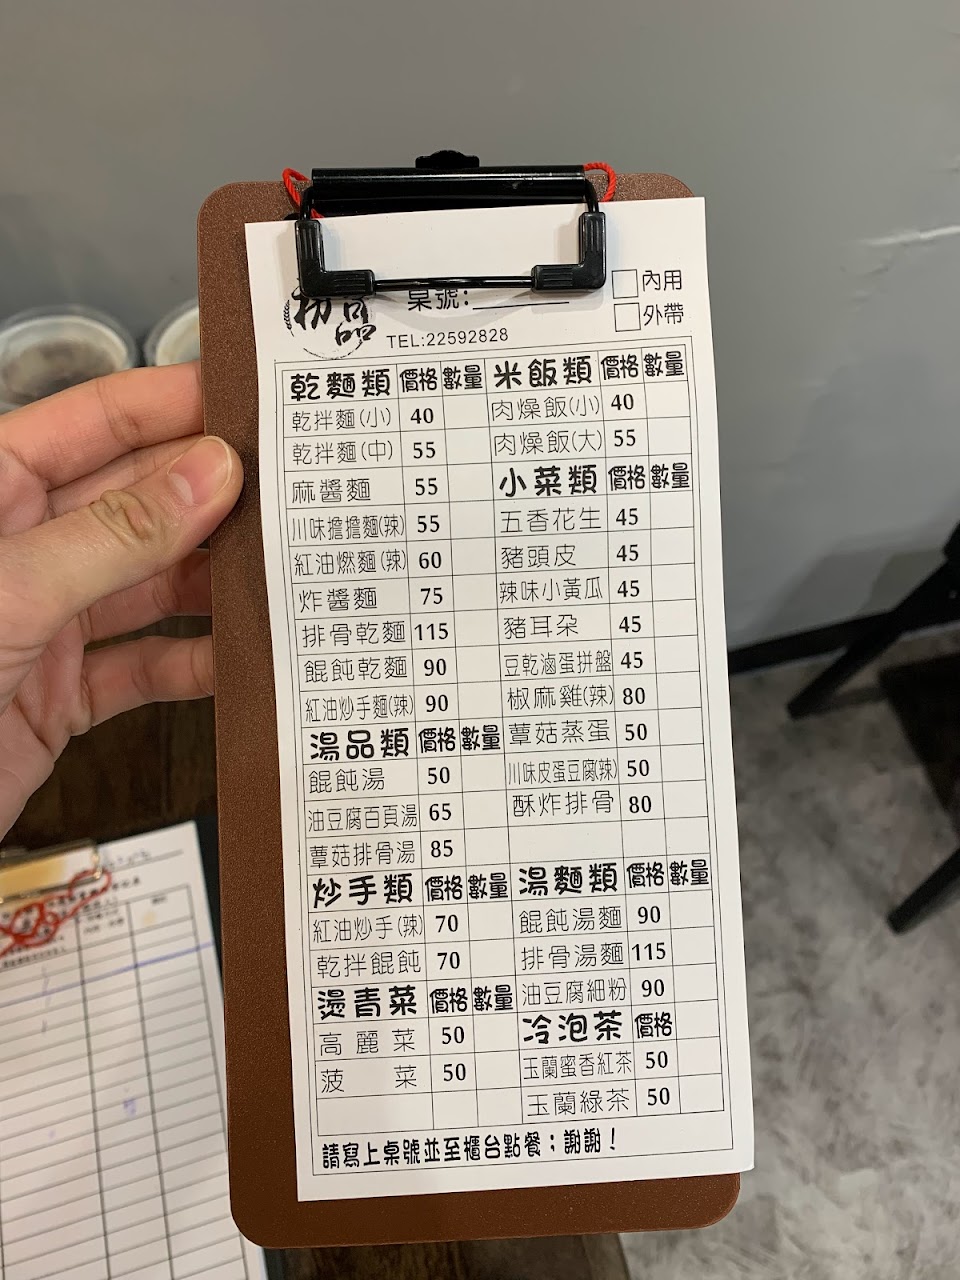 桌號：
內用
外帶
品
TEL:22592828
乾麵類 價格 數量
乾拌麵(小) 40
乾拌麵(中) 55
麻醬麵 55
川味擔擔麵(辣) 55
紅油燃麵(辣) 60
炸醬麵 75
排骨乾麵 115
餛飩乾麵 90
紅油炒手麵(辣) 90
湯品類 價格 數量
餛飩湯 50
油豆腐百頁湯 65
蕈菇排骨湯 85
炒手類 價格 數量
紅油炒手(辣) 70
乾拌餛飩 70
燙青菜 價格 數量
高麗菜 50
菠菜 50
米飯類 價格 數量
肉燥飯(小) 40
肉燥飯(大) 55
小菜類 價格 數量
五香花生 45
豬頭皮 45
辣味小黃瓜 45
豬耳朵 45
豆乾滷蛋拼盤 45
椒麻雞(辣) 80
蕈菇蒸蛋 50
川味皮蛋豆腐(辣) 50
酥炸排骨 80
湯麵類 價格 數量
餛飩湯麵 90
排骨湯麵 115
油豆腐細粉 90
冷泡茶 價格
玉蘭蜜香紅茶 50
玉蘭綠茶 50
請寫上桌號並至櫃台點餐；謝謝！